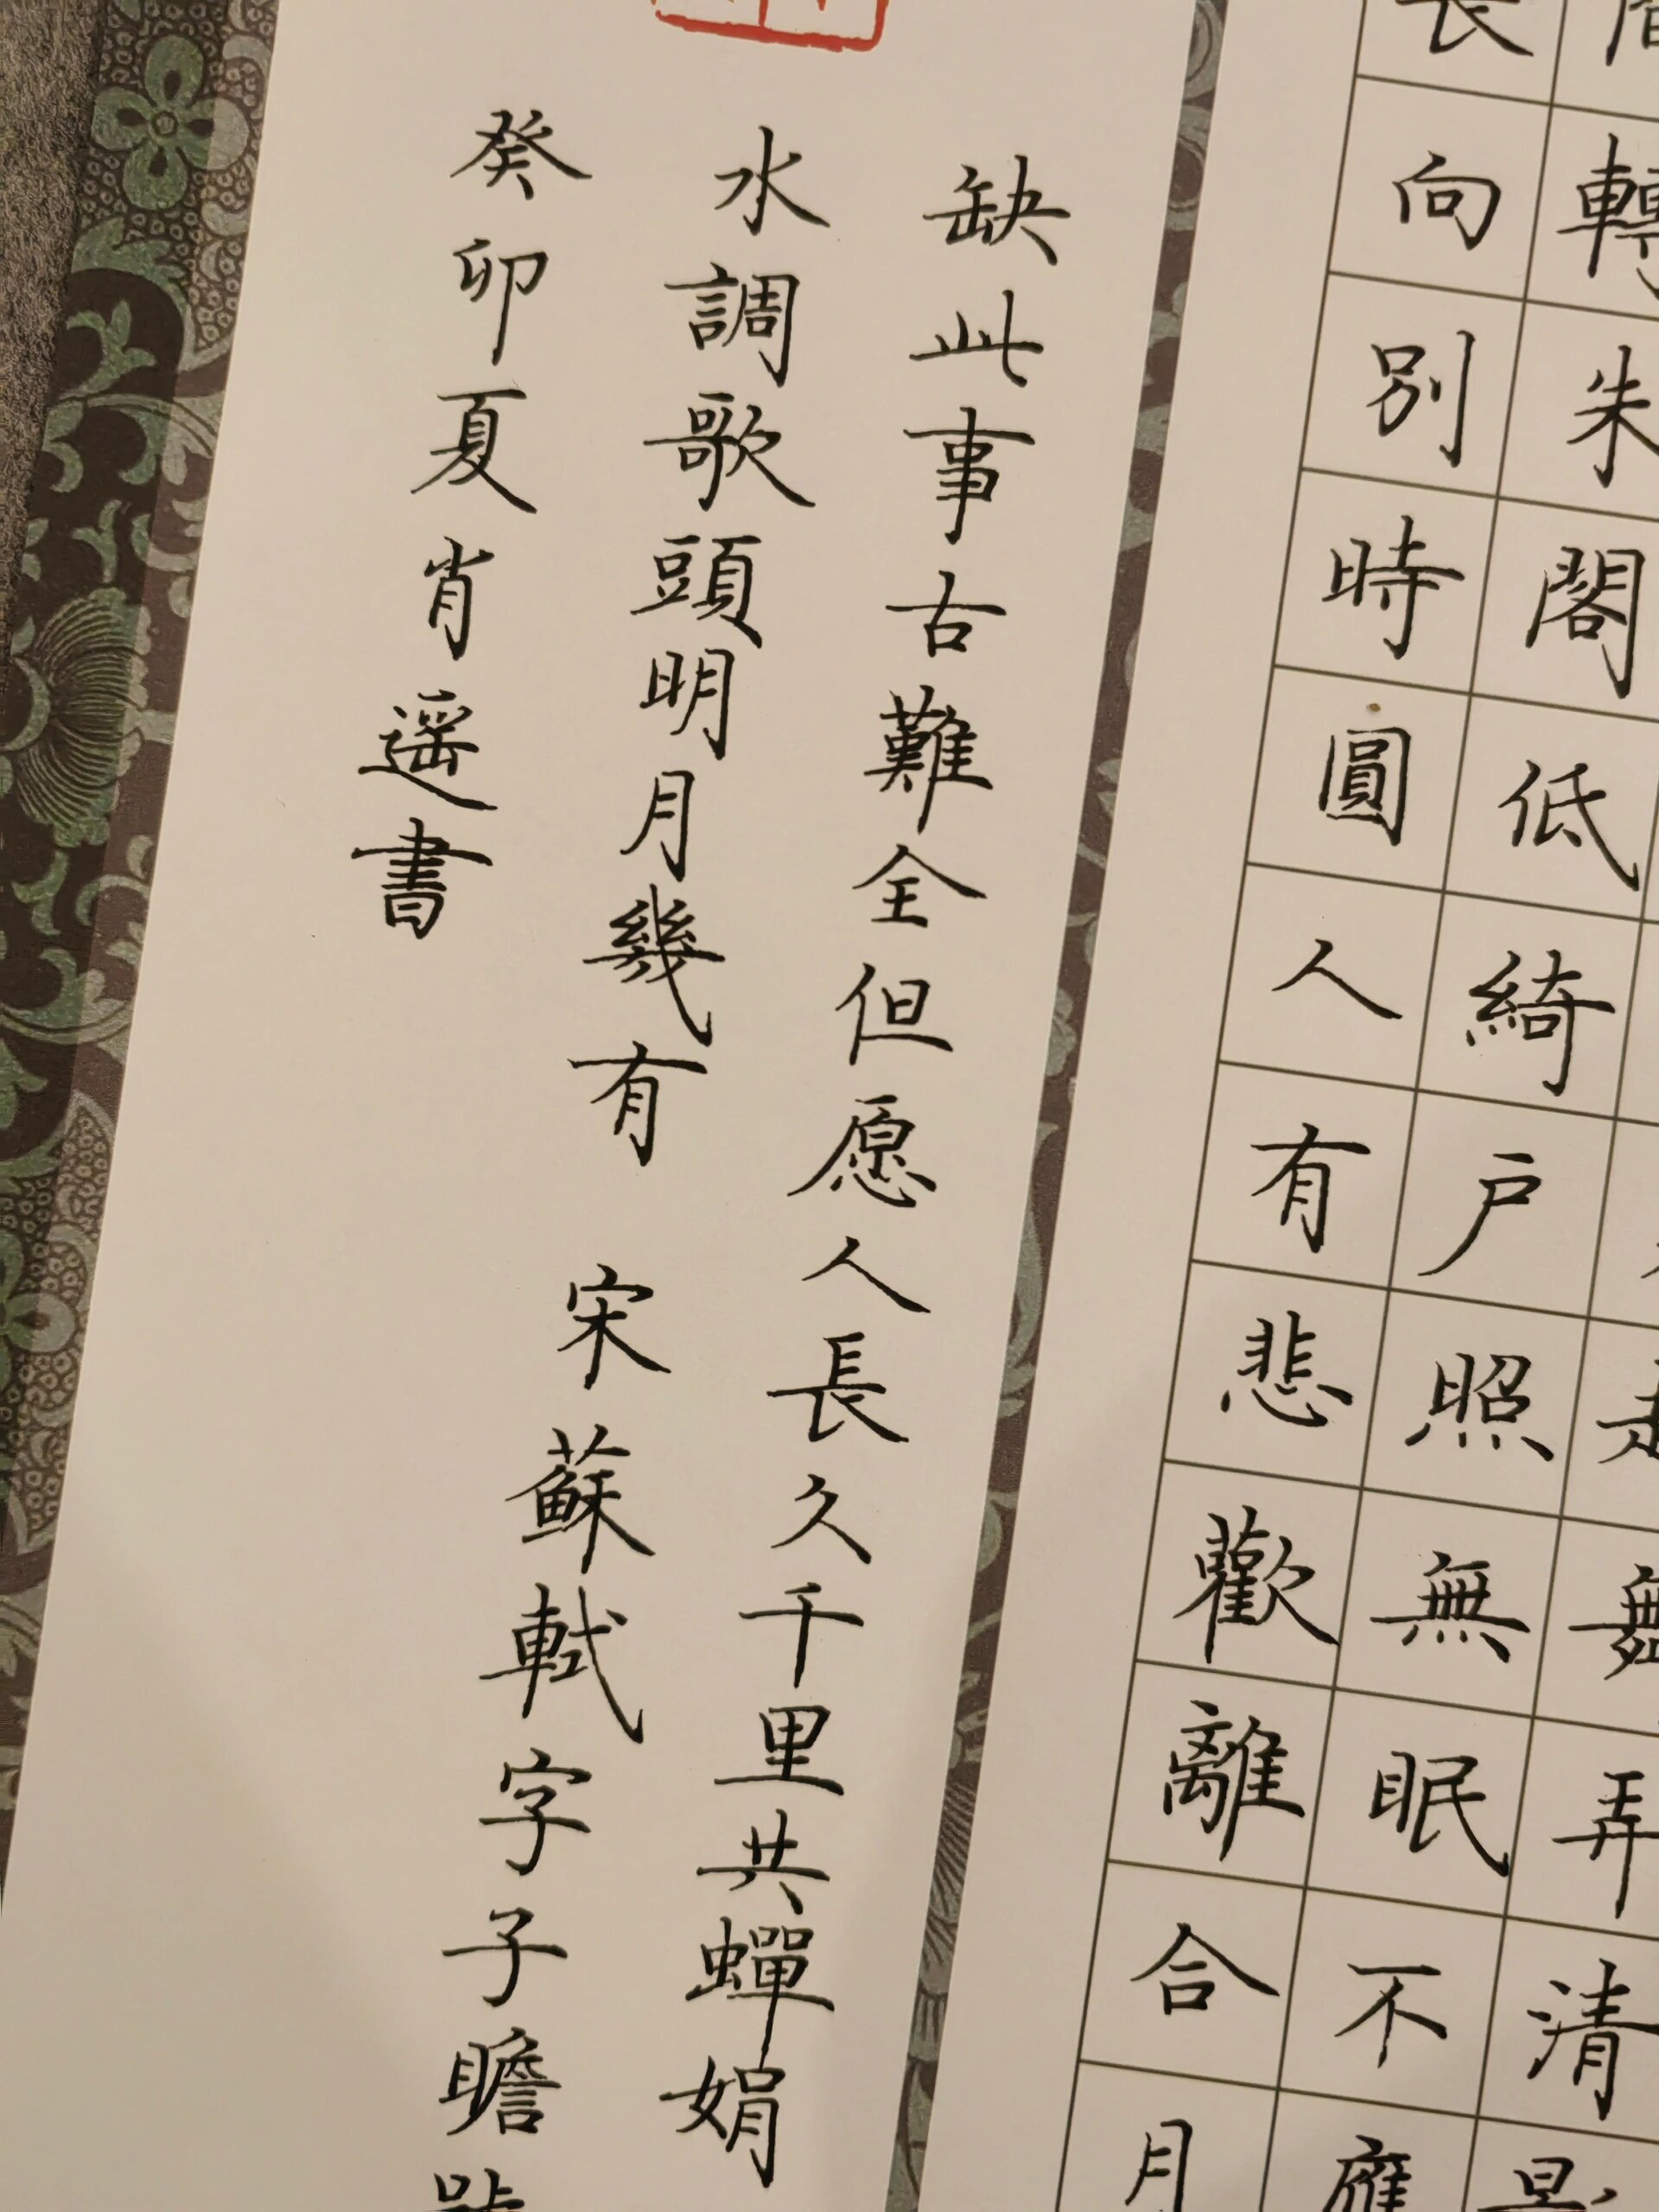 起舞弄清影
間轉朱閣低綺户照無眠不應
長向别時圓人有悲歡離合月
缺此事古難全但愿人長久千里共蟬娟
水調歌頭明月幾有 宋蘇軾字子瞻
癸卯夏肖遥書